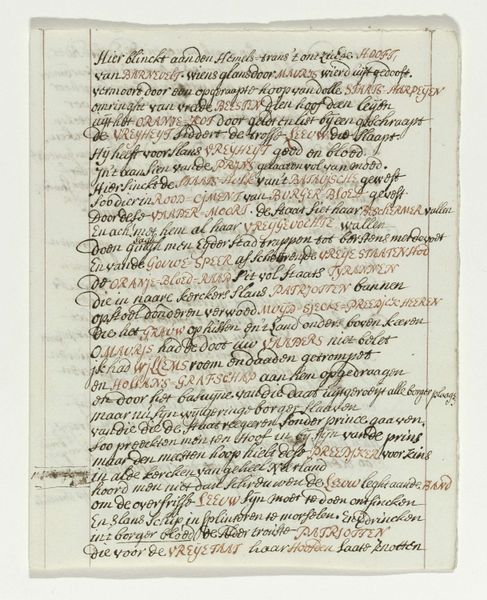 Hier blinckt aan den Hemels-trans 't omziedse HOOFT,
van BARNEVELT wiens glans door MAURIS wierd uijt gedooft.
vermoort door een opgeraapte hoop van dolle STAATS-HARPEIJEN
omringht van vrede BEESTEN geen hooft den leijts
uijt het ORANJE-KOT door geldt en list bij een geschraapt
de VREYHEYT siddert de trotse LEEUW die slaapt
Hij heeft voor slans VREYHEYT goed en bloed
In 't aansien van de PRINS gelaaten vol van moed
Hier sinckt de STAATS-HULK van 't BATAVSCHE gewest
Soo dier in ROOD-CIMENT van BURGER BLOED gevest
Door dese VAADER-MOORT de Staat siet haar BESCHERMER vallen
En ach met hem al haar VREYGEVOCHTE wallen
doen gingh men ider Stad trappen tot berstens met de voet
En van de GOUWE-SPEER afscheuren de VREYE STAATEN HOED
De ORANJE-BLOED-RAAD Zit vol Staats TYRANNEN
die in naare kerckers slans PATRIOTTEN bannen
op stoel donderen verwoed MUYT-SIECKE-PREEDICK HEEREN
Die het GRAUW ophitsen en 't Land onderste boven keeren
O MAURIS had de doot uw VAADERS niet belet
ick had WILLEMS roem en daaden getrompet
en HOLLANS-GRAFSCHAP aan hem opgedraagen
etc door siet basuijne van die daat uijtgeroeijt alle borger plaagen
maar nu sijn wij geringe borger slaaven
van die die de staat regaren sonder prince gaaven
Soo preekten men ten Hoof in bij sijn van de prins
maar den meesten hoop hielt dese PREEDIKER voor Zins
in alde kercken van geheel Neerland
hoord men niet dan schreeuwen de LEEUW leght aan de BAND
om de overfrisse LEEUW sijn moet te doen ontsincken
En slans Schip in splinteren te morselen. En verdrincken
int borger bloed de Vader trouste PATRIOTTEN
die voor de VREYE STAAT haar HOOFDEN laate knotten